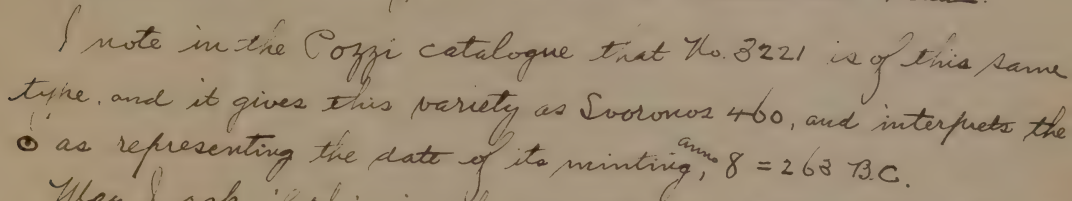 I note in the Pozzi catalogue that No. 3221 is of this same
type, and it gives this variety as Svoronos 460, and interprets the
as representing the date of its minting, anno 8 = 263 B.C.
May I ask